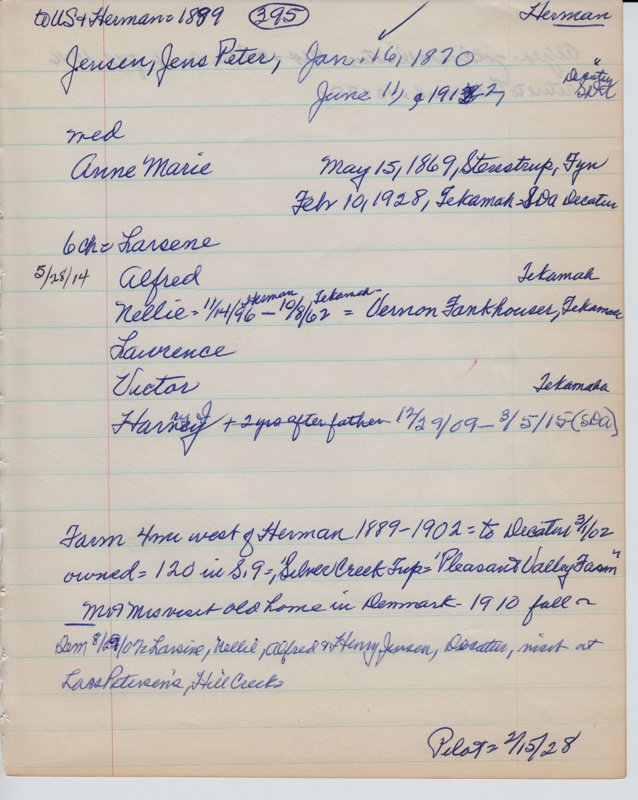 to US & Herman = 1889 395 Herman
Jensen, Jens Peter, Jan. 16, 1870
June 11, 1912, Decatur SDA
med
Anne Marie May 15, 1869, Stenstrup, Fyn
Feb 10, 1928, Tekamah = SDA Decatur
6 ch = Larsene
5/28/14 Alfred Tekamah
Nellie = 11/14/96 Herman - 10/8/62 Tekamah = Vernon Fankhouser, Tekamah
Lawrence
Victor Tekamaha
Harvey J + 2 yrs after father 12/29/09 - 3/5/15 (SDA)
Farm 4 mi west of Herman 1889-1902 = to Decatur 3/1/02
owned = 120 in S. 9 =, Silver Creek Twp = "Pleasant Valley Farm"
Mr & Mrs visit old home in Denmark - 1910 fall
Dem 8/29/07 = Larsine, Nellie, Alfred & Henry Jensen, Decatur, visit at
Lars Petersen's, Hill Creek
Pilot = 2/15/28